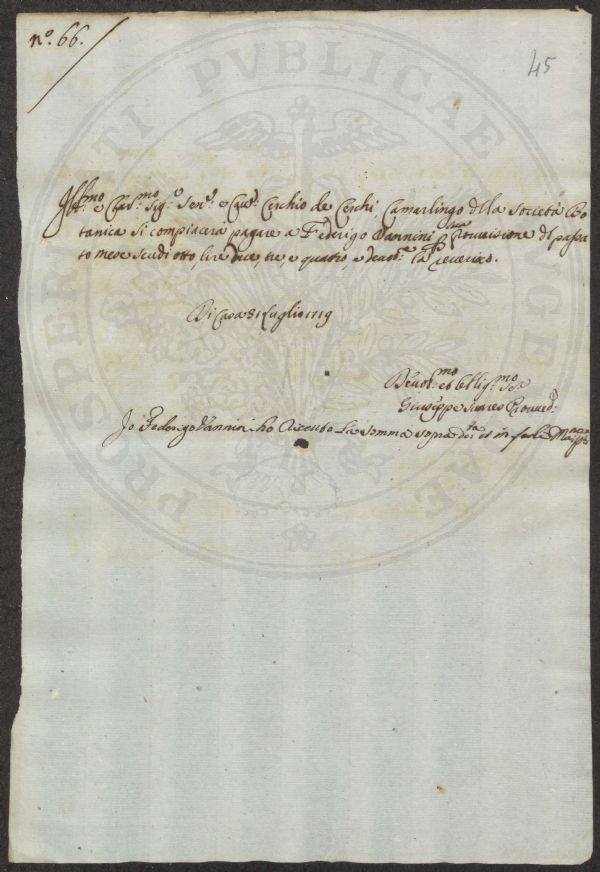 nº. 66.
45
Ill.mo e Clar.mo Sig.e Sen.e e Cav.e Cerchio de Cerchi Camarlingo della Società Bo
tanica si compiacerà pagare a Federigo Vannini sua Provvisione del passa
to mese scudi otto, lire due, tre, e quatro, e la reverisco.
Di Casa 31 Luglio 1719
Devot.mo et Obblig.mo Ser
Giuseppe Suares Proved.e
Io Federigo Vannini ho ricevuto la somma sopra d.ta et in fede Ma.o pp.a
PROSPERITATI PVBLICAE AVGENDAE